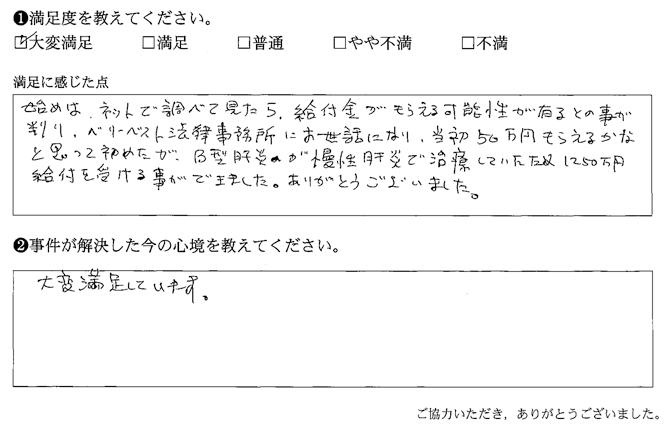 ❶満足度を教えてください。
☑大変満足 □満足 □普通 □やや不満 □不満
満足に感じた点
始めは、ネットで調べて見たら、給付金がもらえる可能性が有るとの事が
判り、ベリーベスト法律事務所にお世話になり、当初50万円もらえるかな
と思って初めたが、B型肝炎が慢性肝炎で治療していたため1250万円
給付を受ける事ができました。ありがとうございました。
❷事件が解決した今の心境を教えてください。
大変満足しています。
ご協力いただき，ありがとうございました。